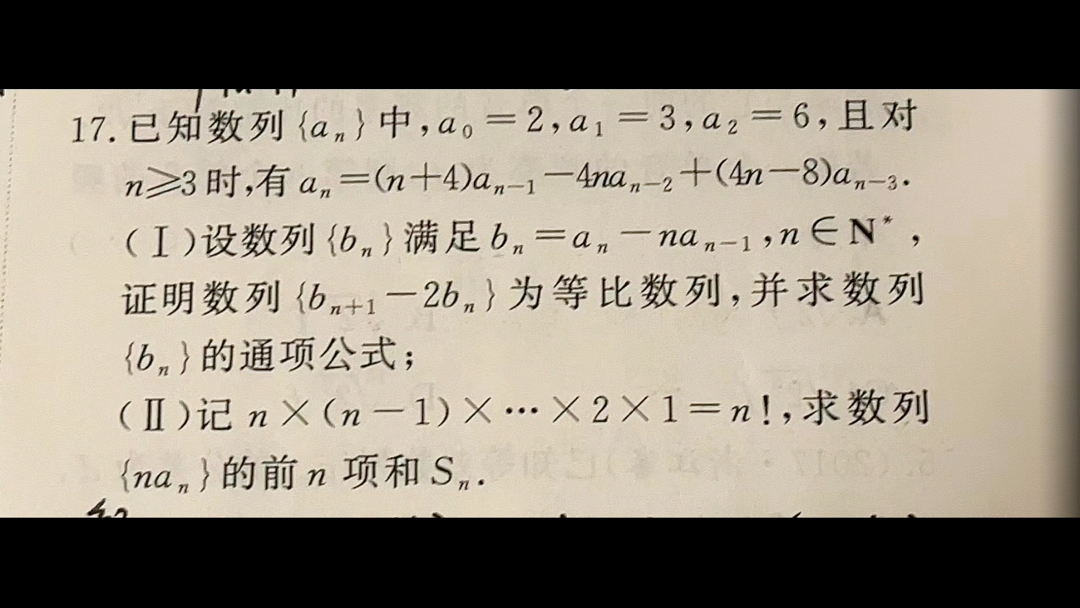 17.已知数列{aₙ}中,a₀=2,a₁=3,a₂=6,且对
n≥3时,有aₙ=(n+4)aₙ₋₁-4naₙ₋₂+(4n-8)aₙ₋₃.
(Ⅰ)设数列{bₙ}满足bₙ=aₙ-naₙ₋₁,n∈N*,
证明数列{bₙ₊₁-2bₙ}为等比数列,并求数列
{bₙ}的通项公式;
(Ⅱ)记n×(n-1)×…×2×1=n!,求数列
{naₙ}的前n项和Sₙ.